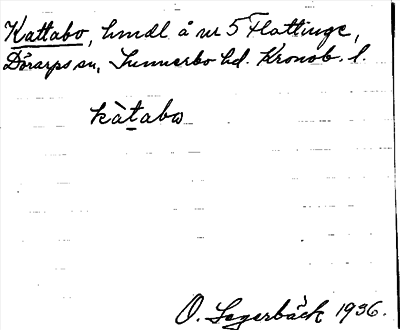 Kattabo, hmdl å nr 5 Flattinge,
Dörarps sn, Sunnerbo hd. Kronob. l.
kàtabω
O. Segerbäck 1936.